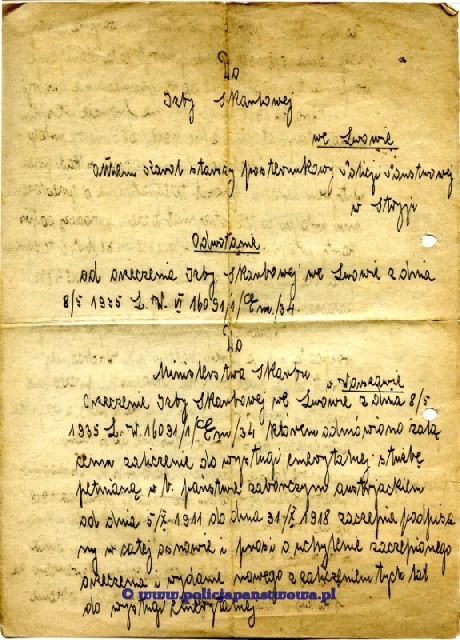 Do
Izby Skarbowej
we Lwowie
Karol starszy posterunkowy Policji Państwowej
w Stryju
Odwołanie
od orzeczenia Izby Skarbowej we Lwowie z dnia
8/5 1935 L. W. VI 16091/1/Em/34.
Do
Ministerstwa Skarbu w Warszawie
Orzeczenie Izby Skarbowej we Lwowie z dnia 8/5
1935 L. W. 16091/1/Em/34 którem odmówiono
zaliczenie do wysługi emerytalnej służbę
pełnioną w b. państwie zaborczym austryackiem
od dnia 5/X 1911 do dnia 31/X 1918 zaczepia podpisa
ny w całej osnowie i prosi o uchylenie zaczepionego
orzeczenia i wydanie nowego z zaliczeniem tych lat
do wysługi emerytalnej.
© www.policjapanstwowa.pl